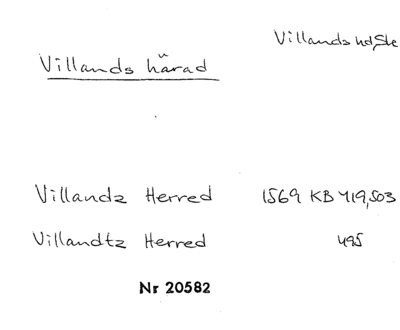 Villands hd, Sk
Villands härad
Villandz Herred 1569 KB 419,503
Villandtz Herred 495
Nr 20582